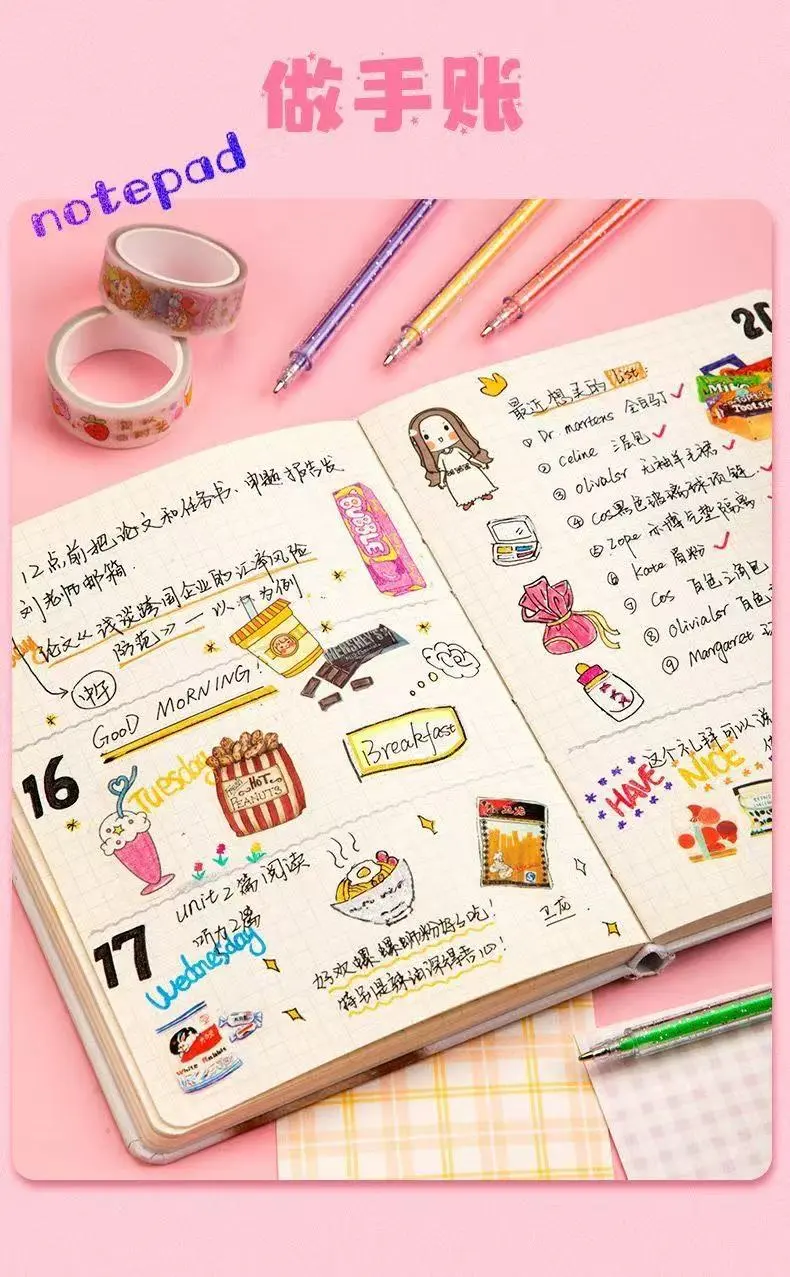 做手账
notepad
12点前把论文和任务书、申题报告发
刘老师邮箱.
论文《浅谈跨国企业的汇率风险
防范》——以 为例
中午
BUBBLE
HERSHEY'S
GOOD MORNING!
Breakfast
16
Tuesday
HOT
PEANUTS
unit 2篇阅读
听力2篇
17
Wednesday
好欢螺螺蛳粉好好吃!
特别是辣油深得吾心!
卫龙
White Rabbit
20
最近想买的 list
① Dr. martens 全白马丁
② Celine 三层包
③ Olivialsr 无袖羊毛裙
④ Cos黑色玻璃珠项链
⑤ Zope 水博气垫隔离
⑥ Kate 眉粉
⑦ Cos 白色三角包
⑧ Olivialsr 白色
⑨ Margaret
Milk
Tootsie
这个礼拜可以说
HAVE NICE